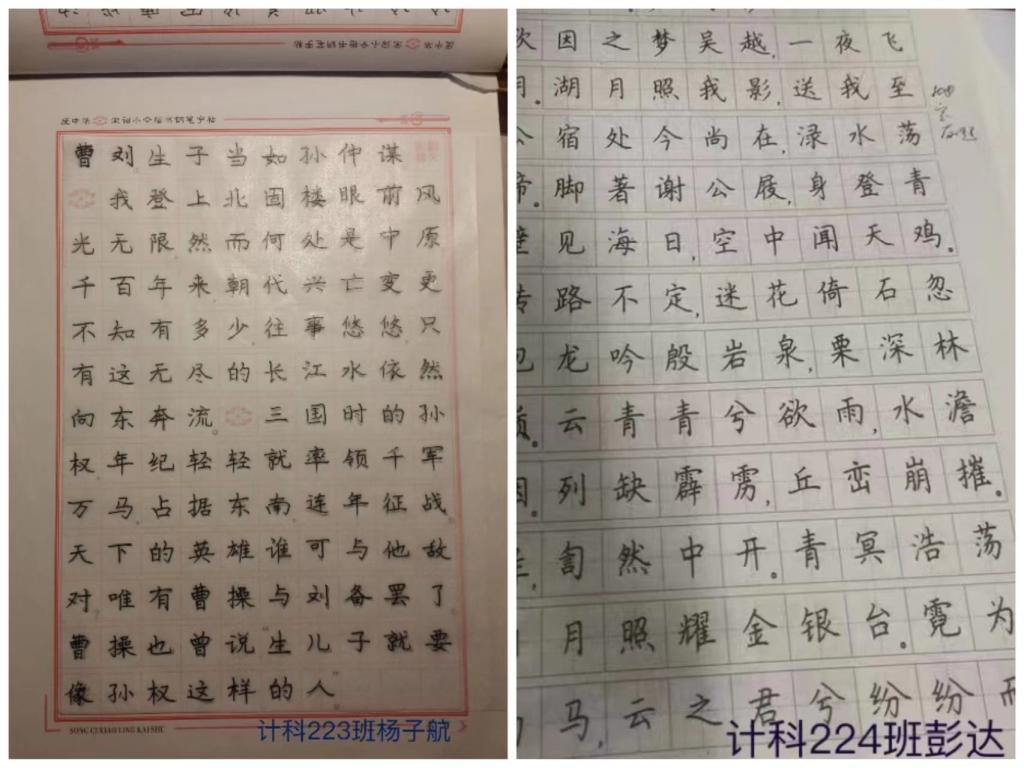 宋词小令楷书钢笔字帖
曹刘生子当如孙仲谋
我登上北固楼眼前风
光无限然而何处是中原
千百年来朝代兴亡变更
不知有多少往事悠悠只
有这无尽的长江水依然
向东奔流。三国时的孙
权年纪轻轻就率领千军
万马占据东南连年征战
天下的英雄谁可与他敌
对唯有曹操与刘备罢了
曹操也曾说生儿子就要
像孙权这样的人
SONG CI XIAO LING KAI SHU
计科223班杨子航
因之梦吴越,一夜飞
月。湖月照我影,送我至
宿处今尚在,渌水荡
脚著谢公屐,身登青
见海日,空中闻天鸡。
转路不定,迷花倚石忽
龙吟殷岩泉,栗深林
云青青兮欲雨,水澹
列缺霹雳,丘峦崩摧。
訇然中开。青冥浩荡
月照耀金银台。霓为
马,云之君兮纷纷而
计科224班彭达